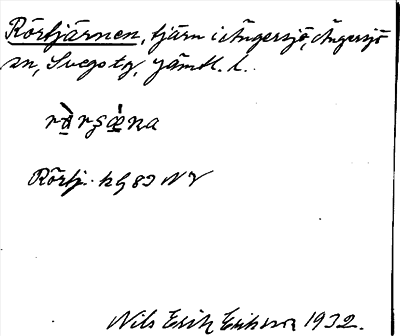 Rörtjärnen, tjärn i Ängersjö, Ängersjö
sn, Svegs tg, Jämtl. l.
Rörtj. kG 83 NV
Nils Erik Eriksson 1932.